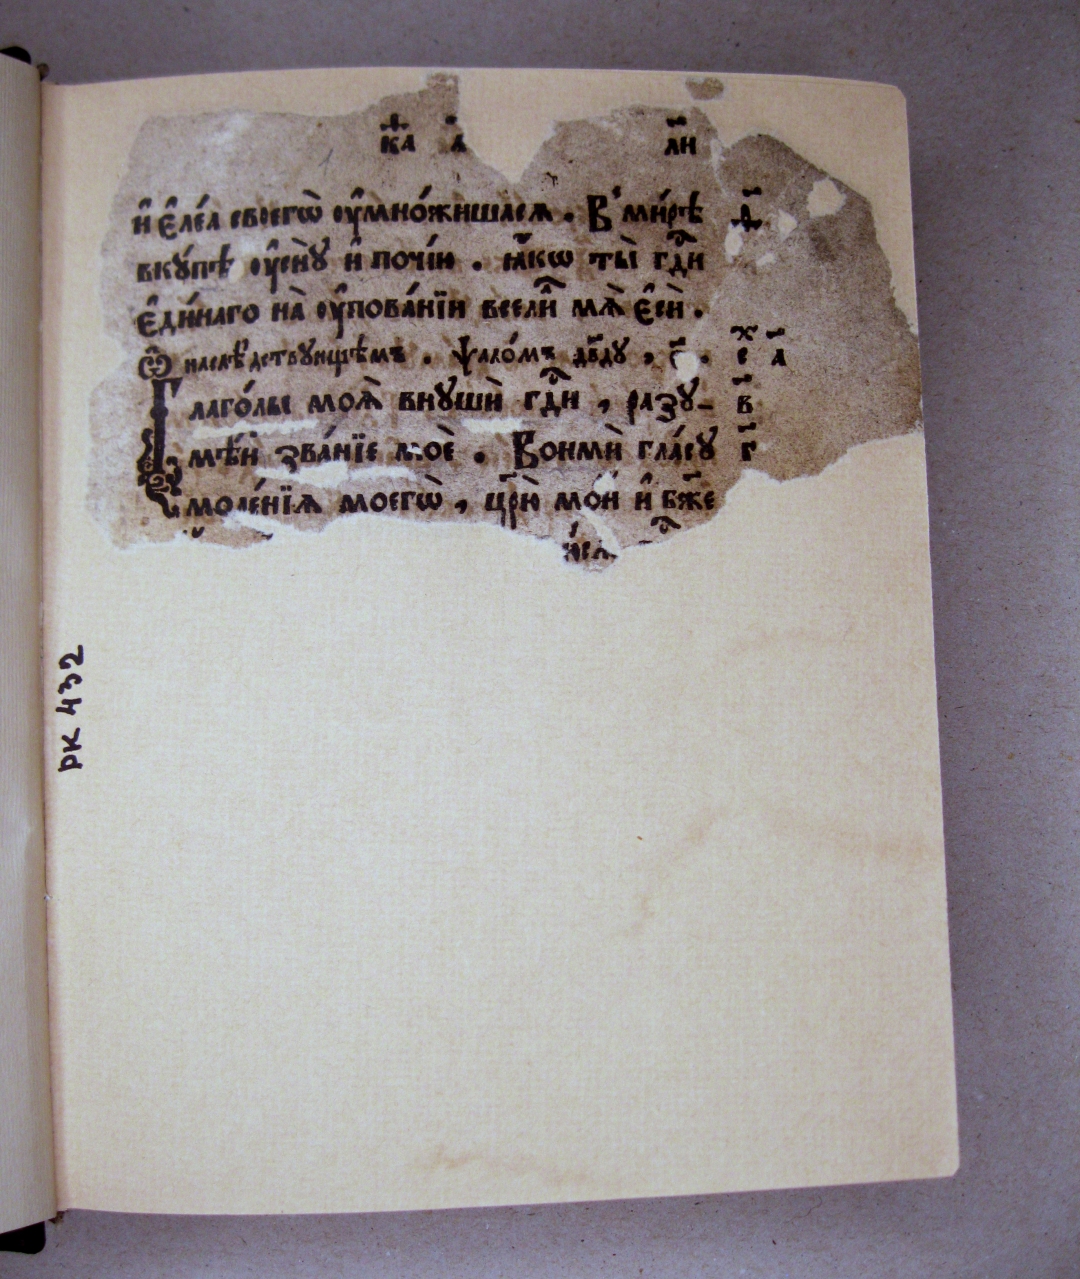 к҃а а҃ л҃и
и҆ є҆ле́а своегѡ̀ ѹ҆мно́жишасѧ . В' ми́рѣ ѳ҃
вкꙋ́пѣ ѹ҆снꙋ̀ и҆ почі́ю . ꙗ҆́кѡ ты̀ гдⷭ҇и
є҆ди́наго на̀ ѹ҆пова́нїи всели́ мѧ̀ є҆сѝ .
Ѿ наслѣ́дствꙋющемъ . ѱало́мъ дв҃дꙋ , є҃ . с х а҃
Глаго́лы моѧ̀ внꙋшѝ гдⷭ҇и , разꙋ- в҃
мѣ́й зва́нїе моѐ . Вонмѝ гла́сꙋ г҃
моле́нїѧ моегѡ̀ , цр҃ю̀ мо́й и҆ бж҃е
рк 432